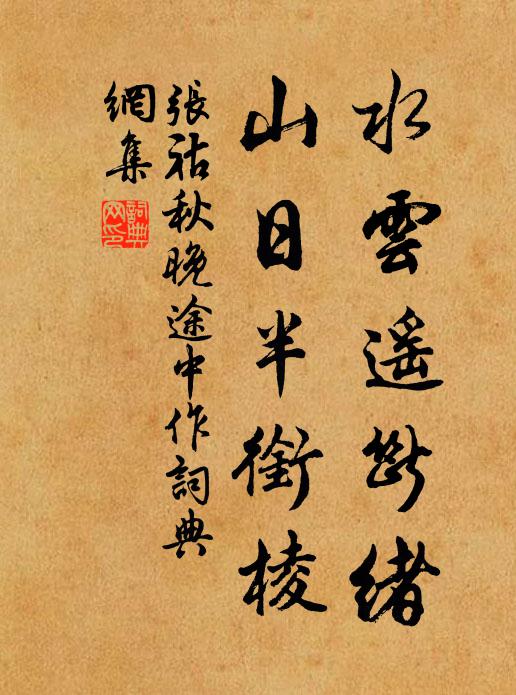 水雲遥断緒
山日半銜棱
張祜秋晚途中作詞典
網集
詞典
网印